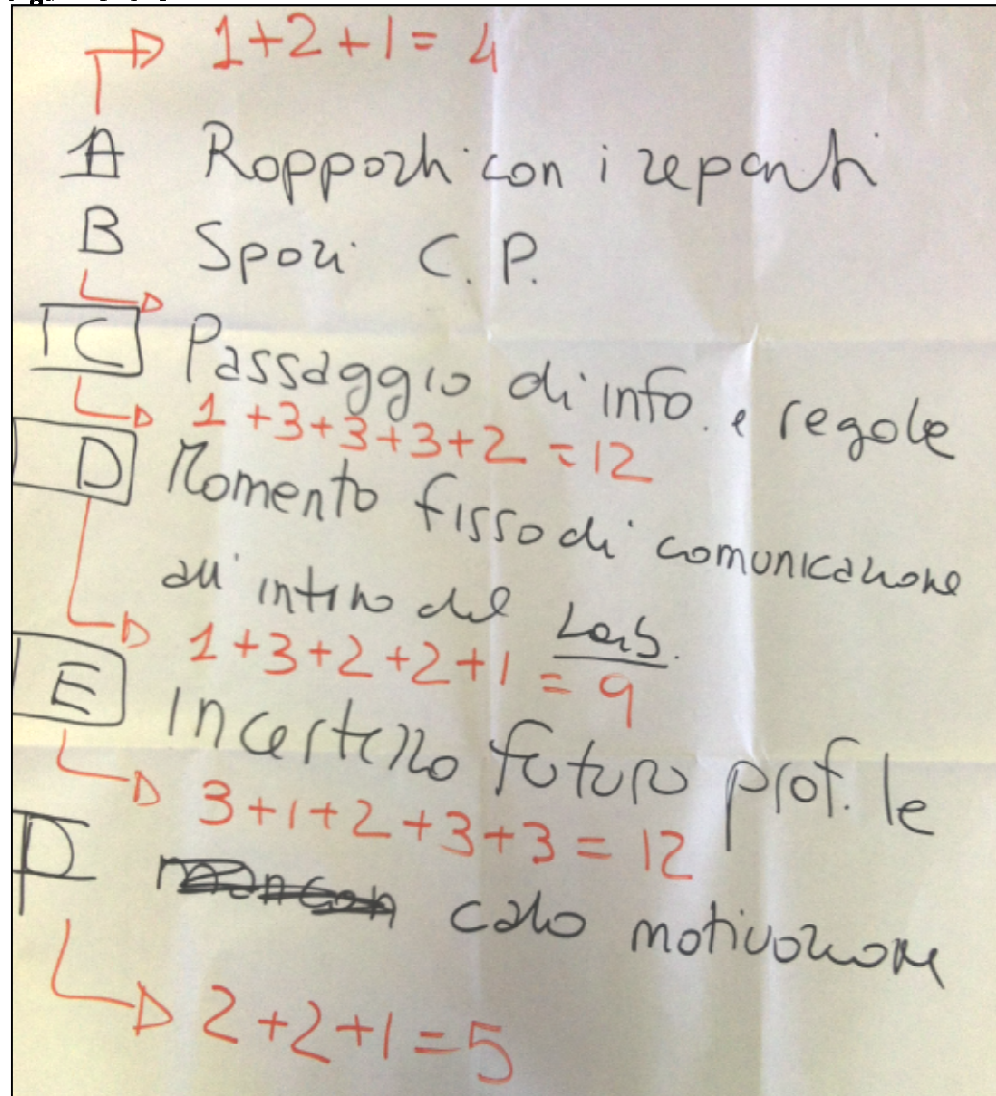 1+2+1= 4
A Rapporti con i reparti
B Spazi C.P.
C Passaggio di info. e regole
1+3+3+3+2 =12
D Momento fisso di comunicazione
all'interno del Lab.
1+3+2+2+1 = 9
E Incertezza futuro prof.le
3+1+2+3+3= 12
calo motivazione
2+2+1=5